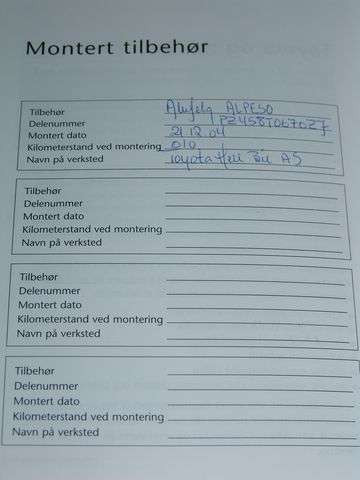 Montert tilbehør
Tilbehør Alufelg ALPESO
Delenummer PZ458T0670ZF
Montert dato 21 12 04
Kilometerstand ved montering 010
Navn på verksted Toyota Hell Bil AS
Tilbehør
Delenummer
Montert dato
Kilometerstand ved montering
Navn på verksted
Tilbehør
Delenummer
Montert dato
Kilometerstand ved montering
Navn på verksted
Tilbehør
Delenummer
Montert dato
Kilometerstand ved montering
Navn på verksted